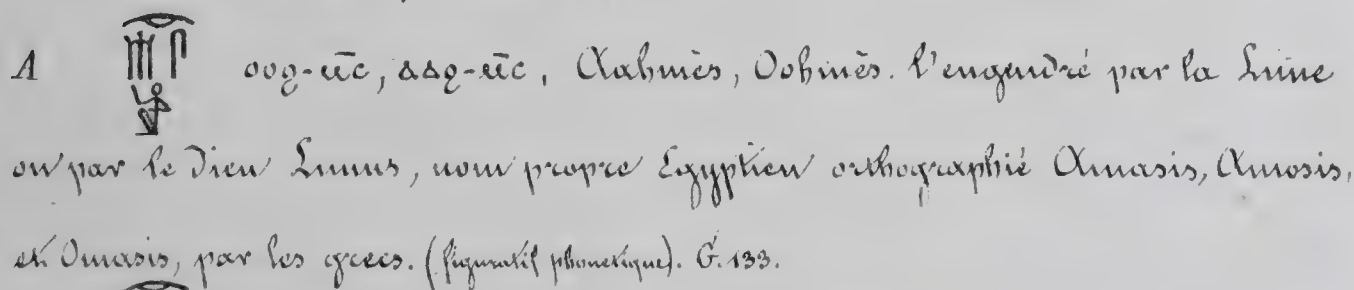 A ⲟⲟϩ-ⲙ̄ⲥ, ⲁⲁϩ-ⲙ̄ⲥ, Aahmès, Oohmès. l'engendré par la Lune
ou par le Dieu Lunus, nom propre Egyptien orthographié Amasis, Amosis,
et Omasis, par les grecs. (figuratif phonetique). G. 133.